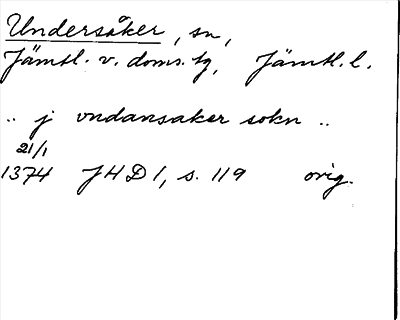 Undersåker, sn,
Jämtl. v. doms. tg, Jämtl. l.
.. j vndansaker sokn ..
21/1
1374 JHD 1, s. 119 orig.